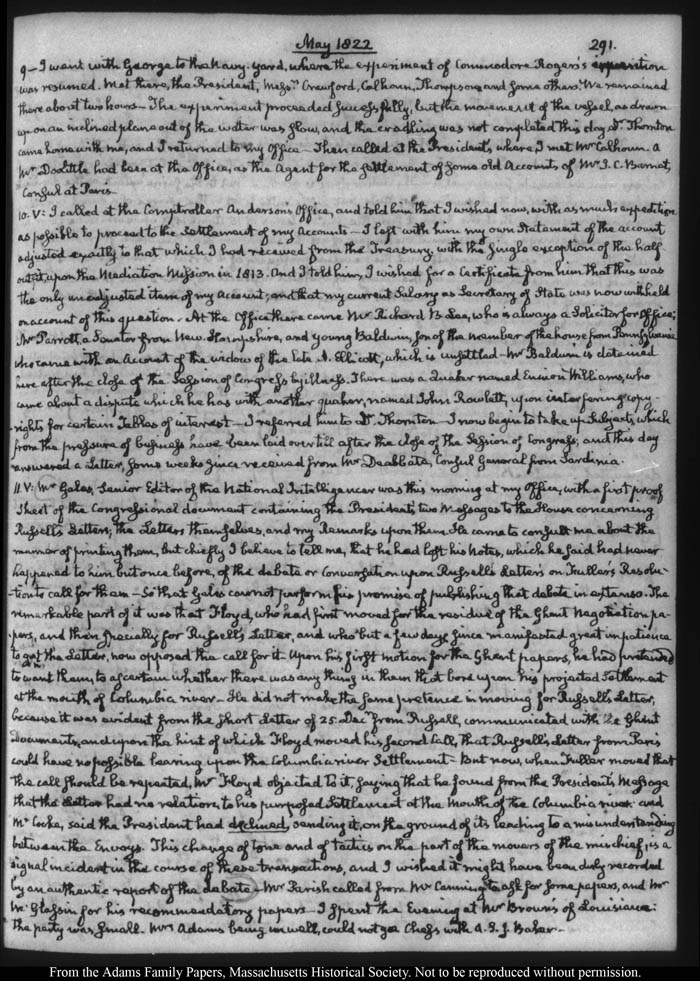 May 1822 291.
9 – I went with George to the Navy-yard, where the experiment of Commodore Rogers's
was resumed. Met there, the President, Messrs. Crawford, Calhoun, Thompson and some others. We remained
there about two hours – The experiment proceeded successfully, but the movement of the vessel, as drawn
up on an inclined plane out of the water was slow, and the cradling was not completed this day. Dr. Thornton
came home with me, and I returned to my Office – Then called at the President's, where I met Mr Calhoun. A
Mr Doolittle had been at the Office, as the Agent for the settlement of some old Accounts of Mr I. C. Barnet,
Consul at Paris.
10. V: I called at the Comptroller Anderson's Office, and told him that I wished now, with as much expedition
as possible to proceed to the settlement of my Accounts – I left with him my own Statement of the account,
adjusted exactly to that which I had received from the Treasury, with the single exception of the half
outfit, upon the Mediation Mission in 1813. And I told him, I wished for a Certificate from him that this was
the only unadjusted item of my account; and that my current Salary as Secretary of State was now withheld
on account of this question. At the Office there came Mr Richard B. Lee, who is always a Solicitor for Office;
Mr Parrott, a Senator from New-Hampshire, and young Baldwin, son of the member of the house from Pennsylvania
who came with an Account of the widow of the late A. Ellicott, which is unsettled – Mr Baldwin is detained
here after the close of the Session of Congress by illness. There was a Quaker named Williams, who
came about a dispute which he has with another quaker, named John Rowlett, upon interfering copy-
-rights for certain Tables of interest – I referred him to Dr. Thornton – I now begin to take up Subjects, which
from the pressure of business have been laid over till after the close of the Session of Congress; and this day
answered a Letter, some weeks since received from Mr Deabbate, Consul General from Sardinia.
11. V: Mr Gales, Senior Editor of the National Intelligencer was this morning at my Office, with a first proof
sheet of the Congressional document containing the President's two Messages to the House concerning
Russell's Letters; the Letters themselves, and my Remarks upon them. He came to consult me about the
manner of printing them, but chiefly I believe to tell me, that he had lost his Notes, which he said had never
happened to him but once before, of the debate or Conversation upon Russell's Letters on Fuller's Resolu-
-tion to call for them – So that Gales cannot perform his promise of publishing that debate in extenso. The
remarkable part of it was that Floyd, who had first moved for the residue of the Ghent Negotiation pa-
-pers, and then specially for Russell's Letter, and who but a few days since manifested great impatience
to get the Letter, now opposed the call for it. Upon his first motion for the Ghent papers, he had pretended
to want them, to ascertain whether there was any thing in them that bore upon his projected Settlement
at the mouth of Columbia river – He did not make the same pretence in moving for Russell's Letter,
because it was evident from the short Letter of 25. Decr from Russell, communicated with the Ghent
Documents, and upon the hint of which Floyd moved his second Call, that Russell's Letter from Paris
could have no possible bearing upon the Columbia river Settlement – But now, when Fuller moved that
the call should be repeated, Mr Floyd objected to it, saying that he found from the President's Message
that the Letter had no relation, to his purposed Settlement at the Mouth of the Columbia river and
Mr Cocke, said the President had declined, sending it, on the ground of its leading to a misunderstanding
between the Envoys. This change of tone and of tactics on the part of the movers of the mischief, is a
signal incident in the course of these transactions, and I wished it might have been duly recorded
by an authentic report of the debate – Mr Parish called from Mr Canning to ask for some papers, and Mr
for his recommendatory papers – I spent the Evening at Mr Brown's of Louisiana:
the party was small. Mrs Adams being unwell, could not go. Chess with A. S. J. Baker –
From the Adams Family Papers, Massachusetts Historical Society. Not to be reproduced without permission.